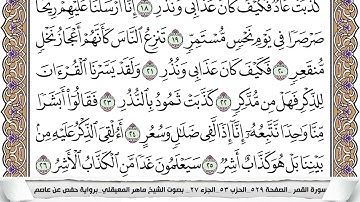 كَذَّبَتْ عَادٌ فَكَيْفَ كَانَ عَذَابِى وَنُذُرِ ١٨ إِنَّآ أَرْسَلْنَا عَلَيْهِمْ رِيحًا
صَرْصَرًا فِى يَوْمِ نَحْسٍ مُّسْتَمِرٍّ ١٩ تَنزِعُ ٱلنَّاسَ كَأَنَّهُمْ أَعْجَازُ نَخْلٍ
مُّنقَعِرٍ ٢٠ فَكَيْفَ كَانَ عَذَابِى وَنُذُرِ ٢١ وَلَقَدْ يَسَّرْنَا ٱلْقُرْءَانَ
لِلذِّكْرِ فَهَلْ مِن مُّدَّكِرٍ ٢٢ كَذَّبَتْ ثَمُودُ بِٱلنُّذُرِ ٢٣ فَقَالُوٓا۟ أَبَشَرًا
مِّنَّا وَٰحِدًا نَّتَّبِعُهُۥٓ إِنَّآ إِذًا لَّفِى ضَلَٰلٍ وَسُعُرٍ ٢٤ أَءُلْقِىَ ٱلذِّكْرُ عَلَيْهِ مِنۢ
بَيْنِنَا بَلْ هُوَ كَذَّابٌ أَشِرٌ ٢٥ سَيَعْلَمُونَ غَدًا مَّنِ ٱلْكَذَّابُ ٱلْأَشِرُ ٢٦
سورة القمر_ الصفحة ٥٢٩_ الحزب ٥٣_ الجزء ٢٧_ بصوت الشيخ ماهر المعيقلي_ برواية حفص عن عاصم